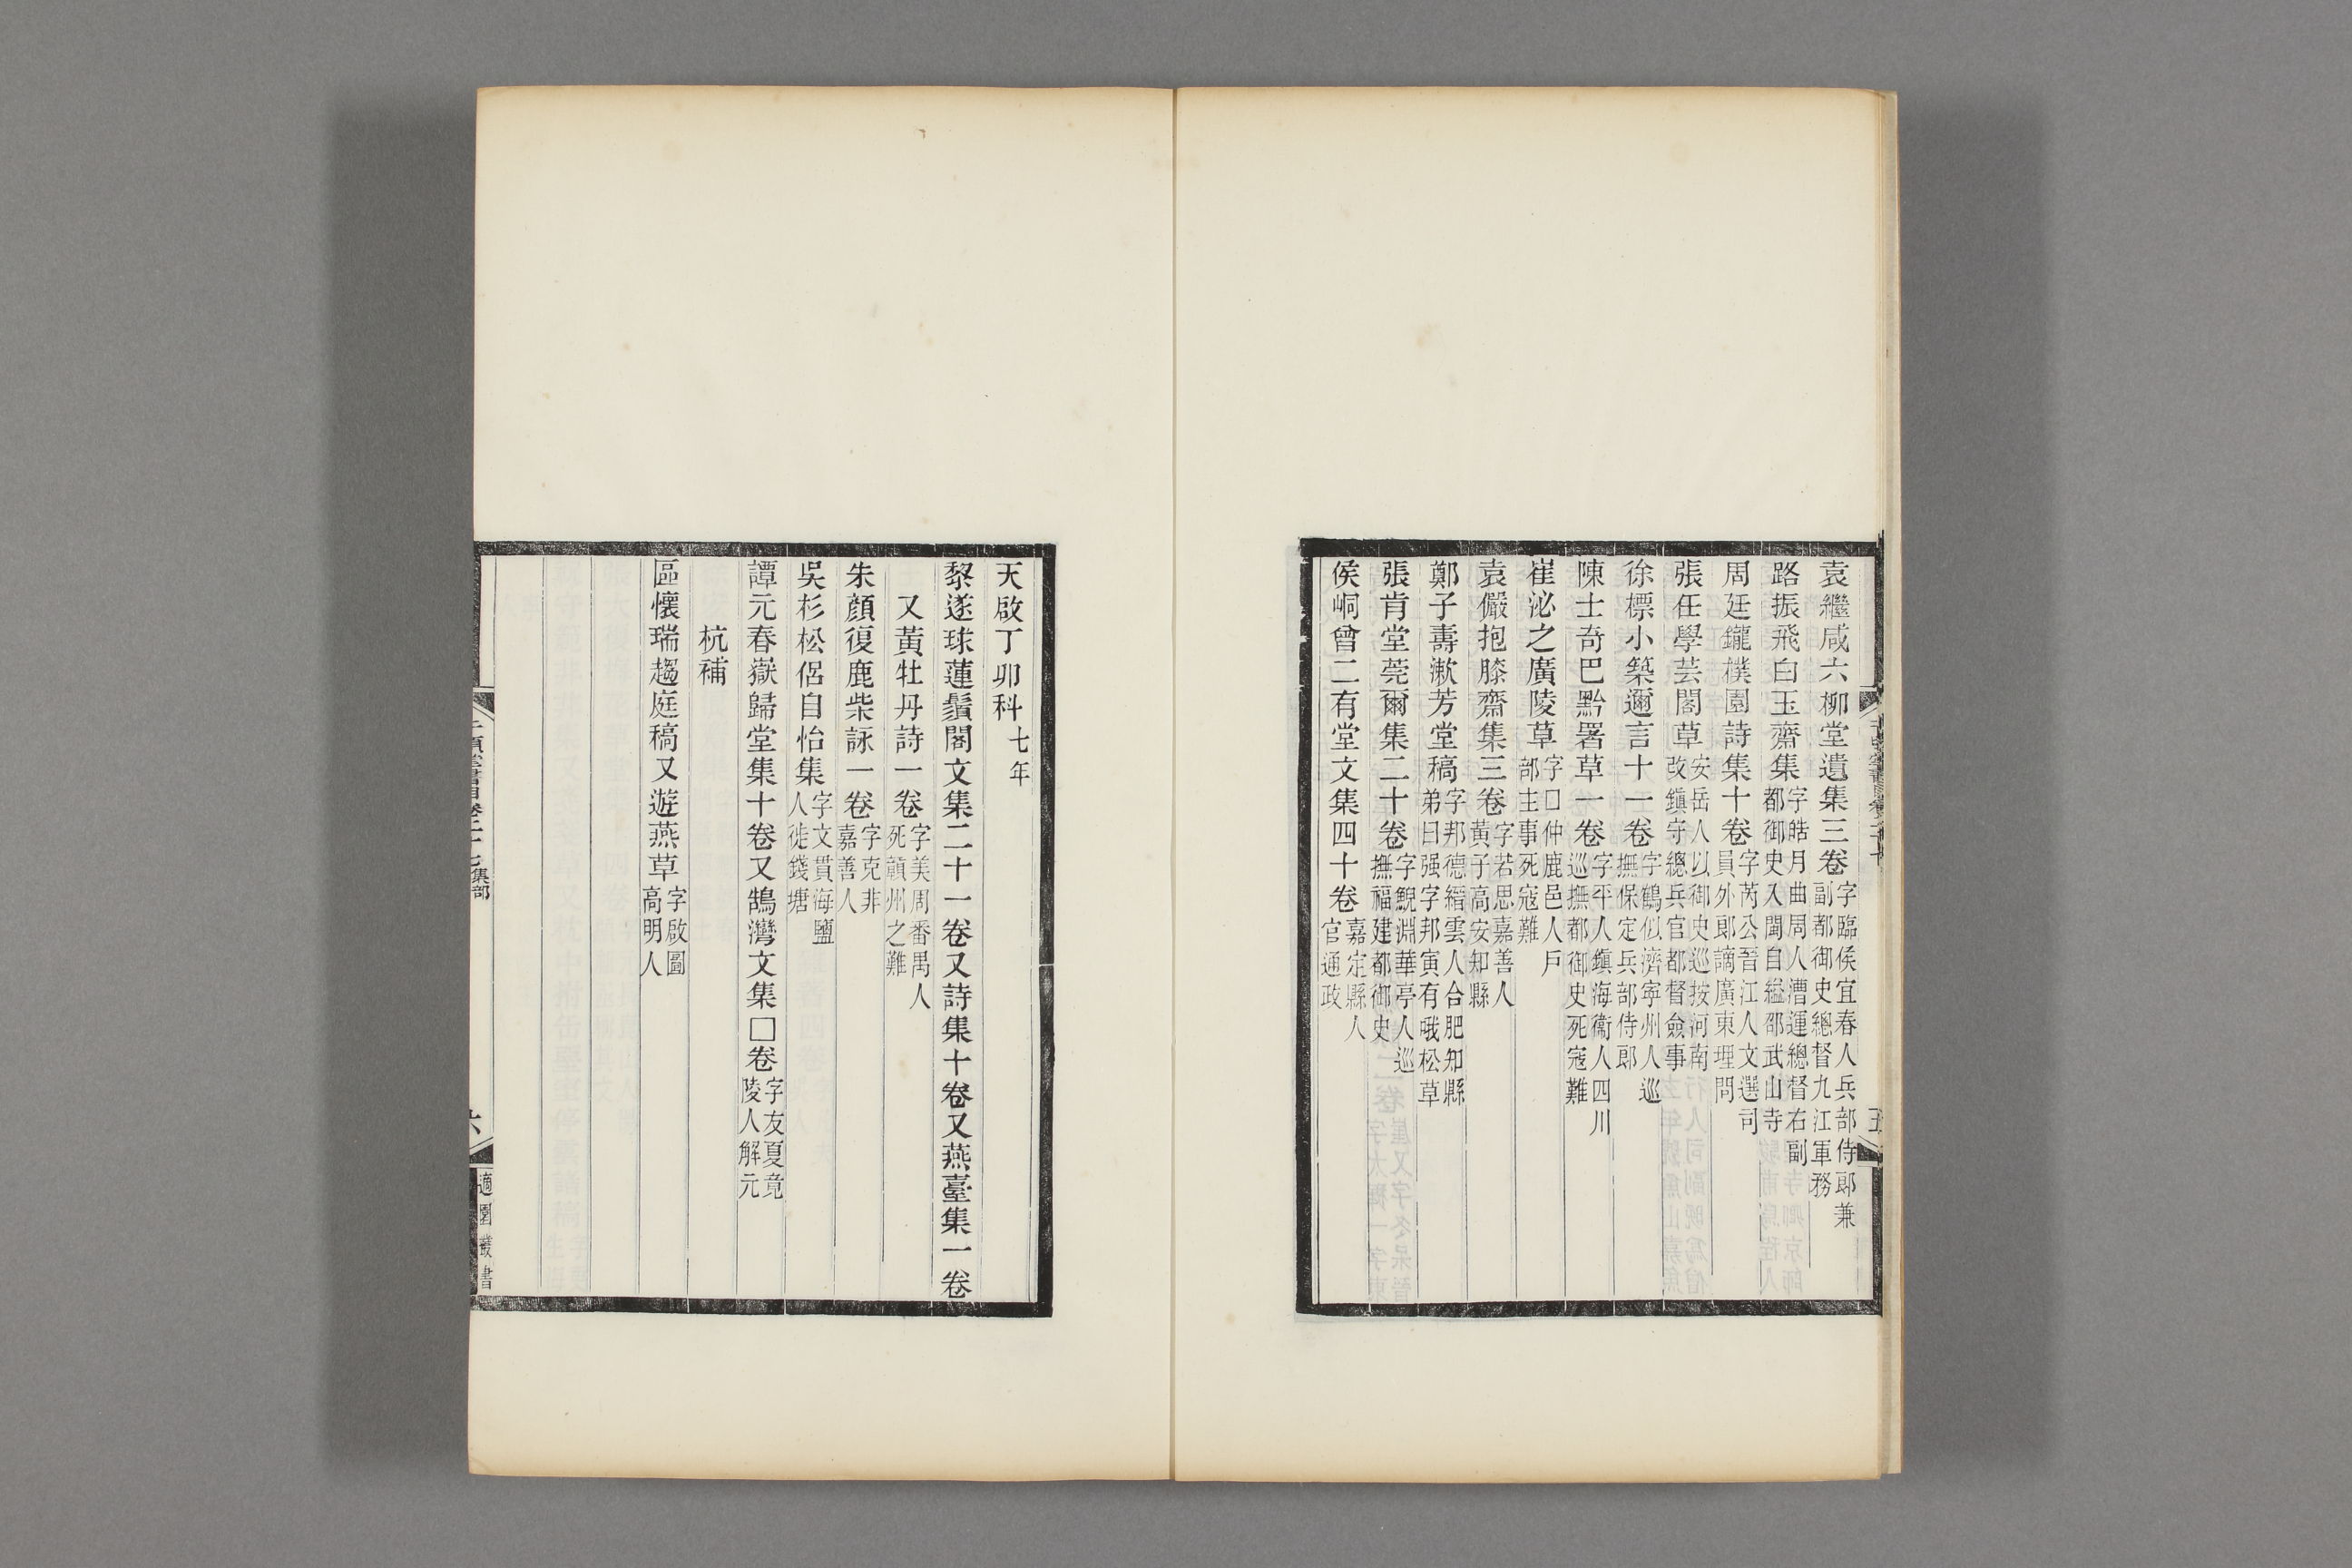 袁繼咸六柳堂遺集三卷字臨侯宜春人兵部侍郎兼副都御史總督九江軍務
路振飛白玉齋集字皓月曲周人漕運總督右副都御史入閩自縊邵武山寺
周廷鑨樸園詩集十卷字芮公晉江人文選司員外郎謫廣東理問
張任學芸閣草安岳人以御史巡按河南改鎮守總兵官都督僉事
徐標小築邇言十一卷字鶴似濟寧州人巡撫保定兵部侍郎
陳士奇巴黔署草一卷字平人鎮海衞人四川巡撫都御史死寇難
崔泌之廣陵草字□仲鹿邑人戶部主事死寇難
袁儼抱膝齋集三卷字若思嘉善人黃子高安知縣
鄭子壽漱芳堂稿字邦德縉雲人合肥知縣弟曰强字邦寅有哦松草
張肯堂莞爾集二十卷字鯢淵華亭人巡撫福建都御史
侯峒曾二有堂文集四十卷嘉定縣人官通政
五
天啟丁卯科七年
黎遂球蓮鬚閣文集二十一卷又詩集十卷又燕臺集一卷
又黃牡丹詩一卷字美周番禺人死贛州之難
朱顏復鹿柴詠一卷字克非嘉善人
吳杉松侶自怡集字文貫海鹽人徙錢塘
譚元春嶽歸堂集十卷又鵠灣文集□卷字友夏竟陵人解元
杭補
區懷瑞趨庭稿又遊燕草字啟圖高明人
千頃堂書目卷二十七集部
六
適園叢書